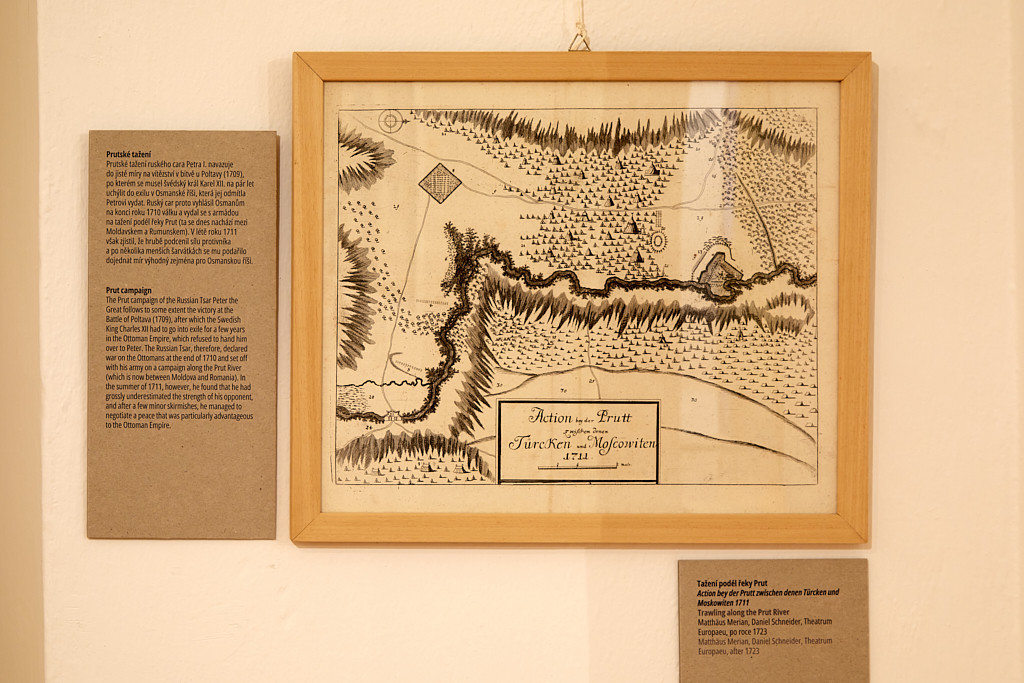 Prutské tažení
Prutské tažení ruského cara Petra I. navazuje
do jisté míry na vítězství v bitvě u Poltavy (1709),
po kterém se musel švédský král Karel XII. na pár let
uchýlit do exilu v Osmanské říši, která jej odmítla
Petrovi vydat. Ruský car proto vyhlásil Osmanům
na konci roku 1710 válku a vydal se s armádou
na tažení podél řeky Prut (ta se dnes nachází mezi
Moldavskem a Rumunskem). V létě roku 1711
však zjistil, že hrubě podcenil sílu protivníka
a po několika menších šarvátkách se mu podařilo
dojednat mír výhodný zejména pro Osmanskou říši.
Prut campaign
The Prut campaign of the Russian Tsar Peter the
Great follows to some extent the victory at the
Battle of Poltava (1709), after which the Swedish
King Charles XII had to go into exile for a few years
in the Ottoman Empire, which refused to hand him
over to Peter. The Russian Tsar, therefore, declared
war on the Ottomans at the end of 1710 and set off
with his army on a campaign along the Prut River
(which is now between Moldova and Romania). In
the summer of 1711, however, he found that he had
grossly underestimated the strength of his opponent,
and after a few minor skirmishes, he managed to
negotiate a peace that was particularly advantageous
to the Ottoman Empire.
Action bey der Prutt
zwischen denen
Türcken und Moscowiten
1711
Tažení podél řeky Prut
Action bey der Prutt zwischen denen Türcken und
Moskowiten 1711
Trawling along the Prut River
Matthäus Merian, Daniel Schneider, Theatrum
Europaeu, po roce 1723
Matthäus Merian, Daniel Schneider, Theatrum
Europaeu, after 1723